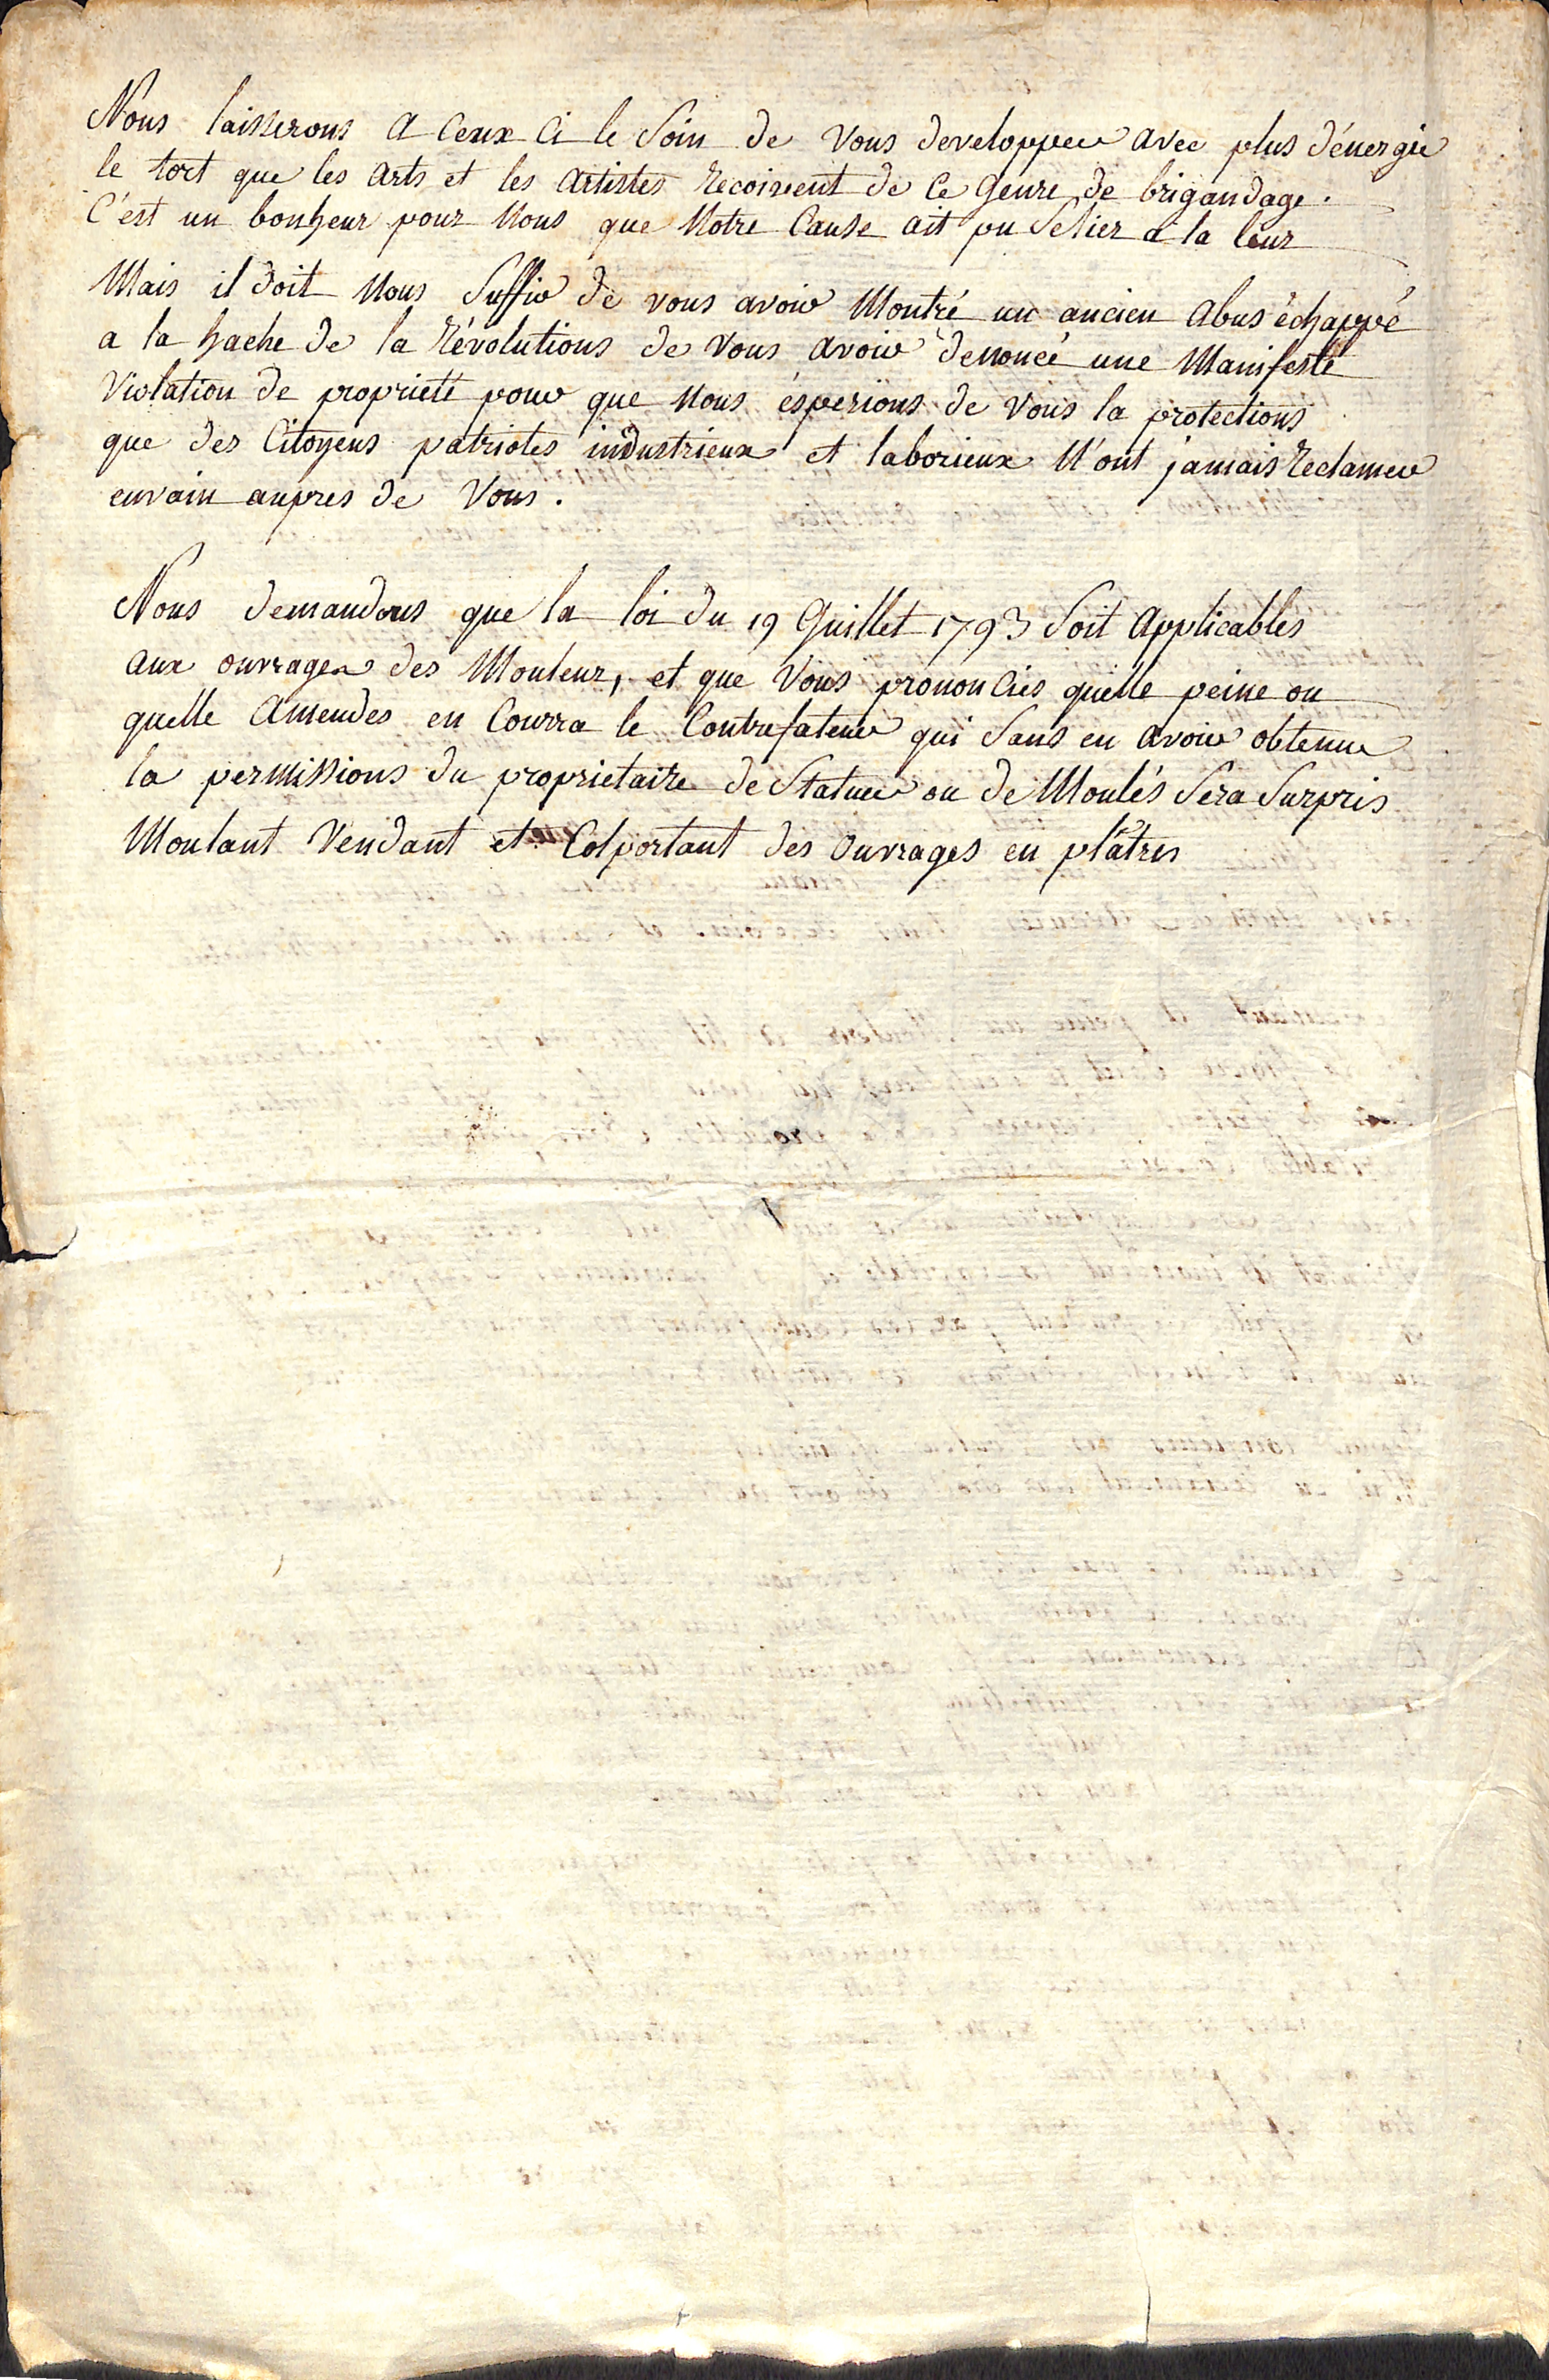 Nous laisserons a ceux ci le Soin de vous developper avec plus d'énergie
le tort que les arts et les artistes recoivent de ce genre de brigandage.
C'est un bonheur pour Nous que Notre Cause ait pu Selier a la leur
Mais il doit Nous Suffir de vous avoir Montré un ancien abus échappé
a la hache de la Révolutions de vous avoir denoncé une Manifeste
Violation de proprieté pour que Nous ésperions de Vous la protections
que des Citoyens patriotes industrieux et laborieux N'ont jamais Reclamer
envain aupres de Vous.
Nous demandons que la loi du 19 Juillet 1793 Soit Applicables
aux ouvrages des Mouleur, et que Vous prononciés quelle peine ou
quelle Amendes en Courra le Contrefateur qui Sans en avoir obtenue
la permissions du proprietaire de Statuee ou de Moulés Sera Surpris
Moulant Vendant et Colportant des Ouvrages en plâtres